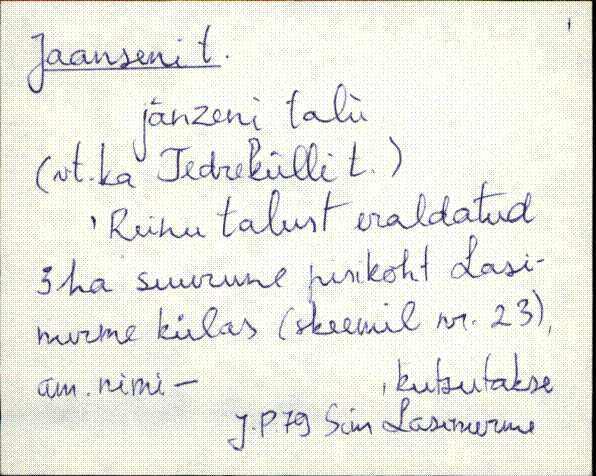 Jaanseni t.
jānzeni talu̇
(vt. ka Tedrekülli t.)
Reinu talust eraldatud
3 ha suurune pisikoht Lasi-
nurme külas (skeemil nr. 23),
am. nimi — , kutsutakse
J.P 79 Sim Lasinurme